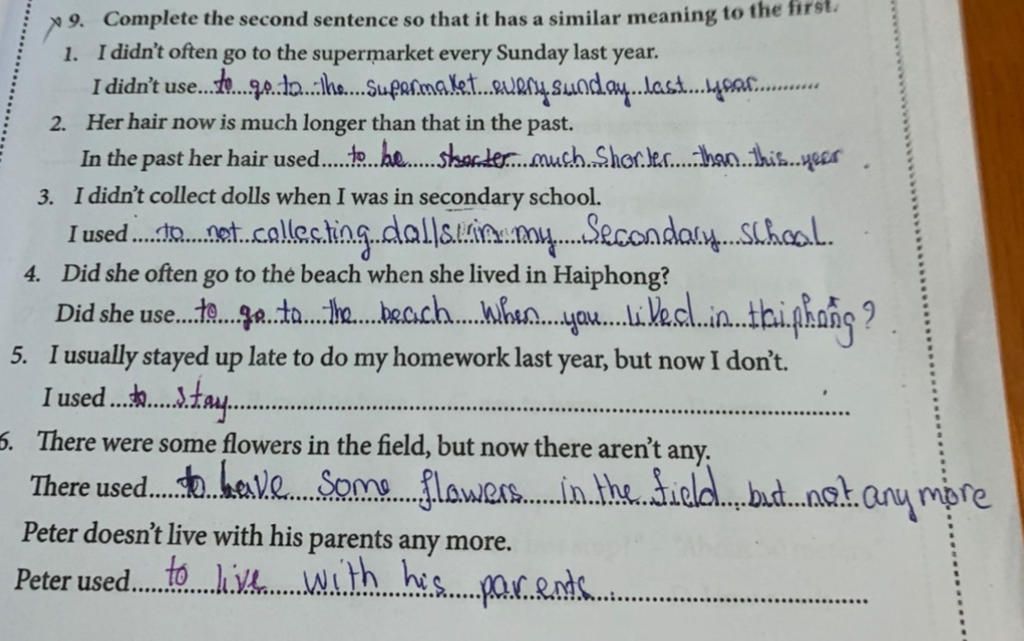 9. Complete the second sentence so that it has a similar meaning to the first.
1. I didn't often go to the supermarket every Sunday last year.
I didn't use...to go to the supermaket every sunday last year............
2. Her hair now is much longer than that in the past.
In the past her hair used.....to be shorter much Shorter than this year.
3. I didn't collect dolls when I was in secondary school.
I used .....to not collecting dolls in my Secondary school.
4. Did she often go to the beach when she lived in Haiphong?
Did she use...to go to the beach When you lived in Haiphong?
5. I usually stayed up late to do my homework last year, but now I don't.
I used ...to stay........................
6. There were some flowers in the field, but now there aren't any.
There used.....to have some flowers in the field, but not any more
Peter doesn't live with his parents any more.
Peter used.....to live with his parents........................